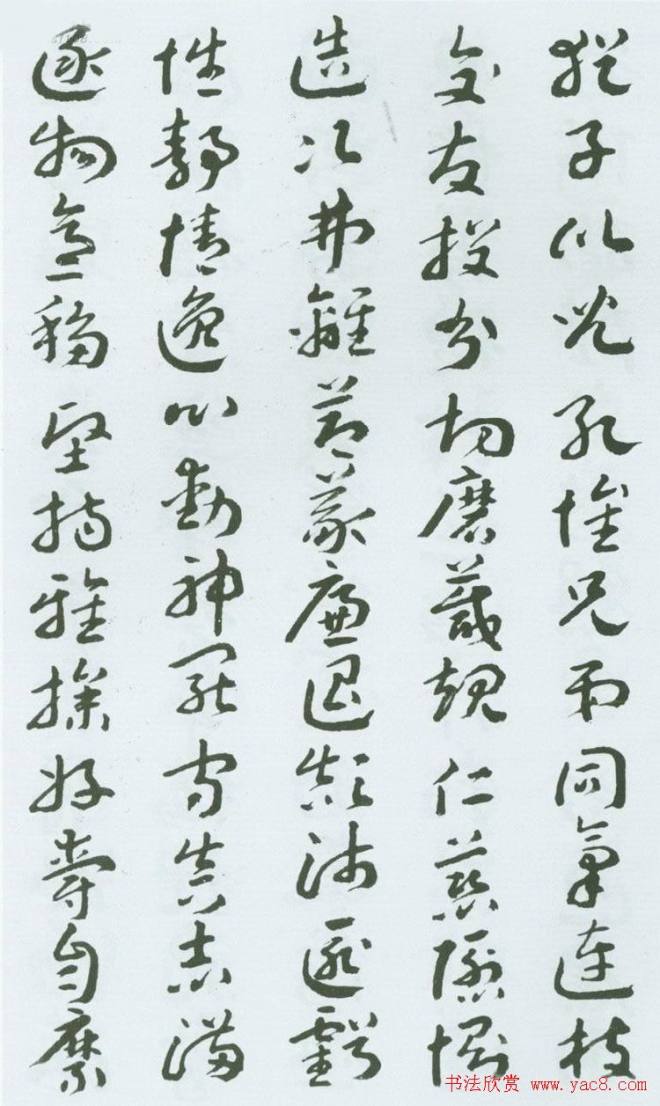 猶子比兒孔懷兄弟同氣連枝
交友投分切磨箴規仁慈隱惻
造次弗離節義廉退顛沛匪虧
性靜情逸心動神疲守真志滿
逐物意移堅持雅操好爵自縻
书法欣赏 www.yac8.com